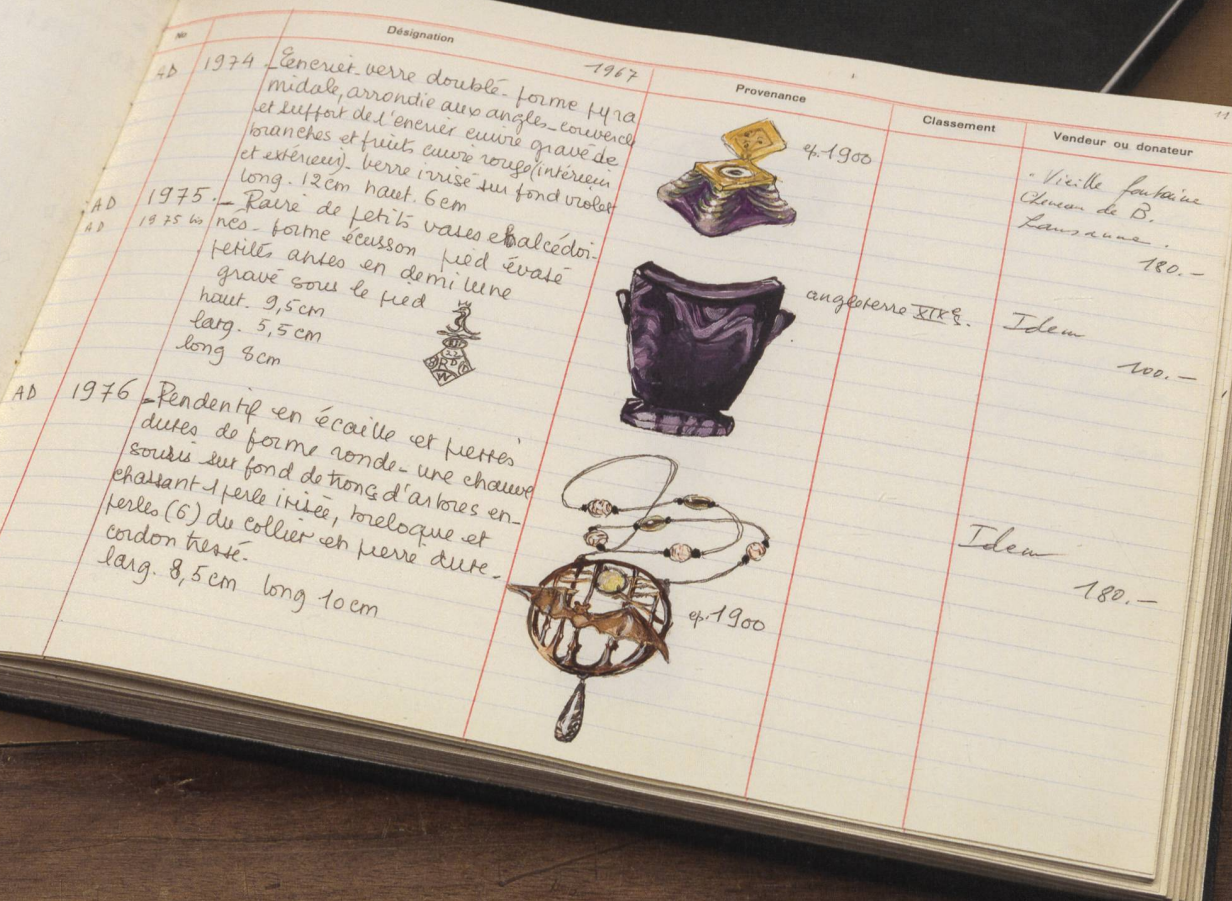 No
Désignation
Provenance
Classement
Vendeur ou donateur
11
1967
AD 1974 - Encrier verre doublé - forme pyra
midale, arrondie aux angles - couvercle
et support de l'encrier cuivre gravé de
branches et fruits cuivre rouge (intérieur
et extérieur). Verre irrisé sur fond violet
long. 12cm haut. 6cm
ep. 1900
- Vieille fontaine
Cheneau de B.
Lausanne.
180.-
AD 1975. - Paire de petits vases chalcédoi-
AD 1975 bis
nés - forme écusson pied évasé
petites anses en demi lune
gravé sous le pied
haut. 9,5cm
larg. 5,5cm
long 8cm
angleterre XIXe s.
Idem
100.-
AD 1976 - Pendentif en écaille et pierres
dures de forme ronde - une chauve
souris sur fond de troncs d'arbres en-
chassant 1 perle irisée, breloque et
perles (6) du collier en pierre dure -
cordon tressé.
larg. 8,5cm long 10cm
ep. 1900
Idem
180.-